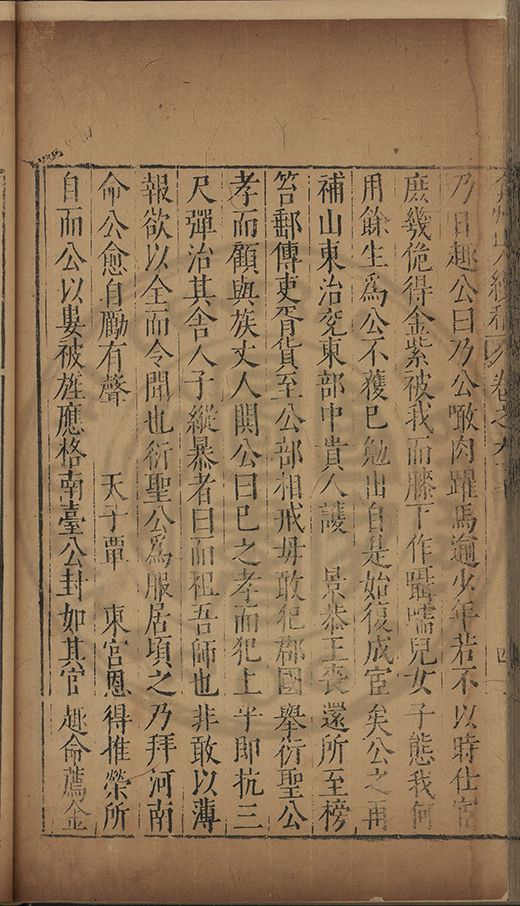 乃日趣公曰乃公噉肉躍馬逾少年若不以時仕宦
庶幾佹得金紫被我而膝下作囁嚅兒女子態我何
用餘生爲公不獲已勉出自是始復成宦矣公之再
補山東治兖東部中貴人護 景恭王喪還所至榜
笞郵傳吏胥貨至公部相戒毋敢犯郡國舉衍聖公
孝而顧與族丈人鬩公曰已之孝而犯上乎即抗三
尺彈治其舍人子縱暴者曰而祖吾師也非敢以薄
報欲以全而令聞也衍聖公爲服居頃之乃拜河南
命公愈自勵有聲 天子覃 東宮恩得推榮所
自而公以婁被旌應格南臺公封如其官趣命薦金
卷之九十
四